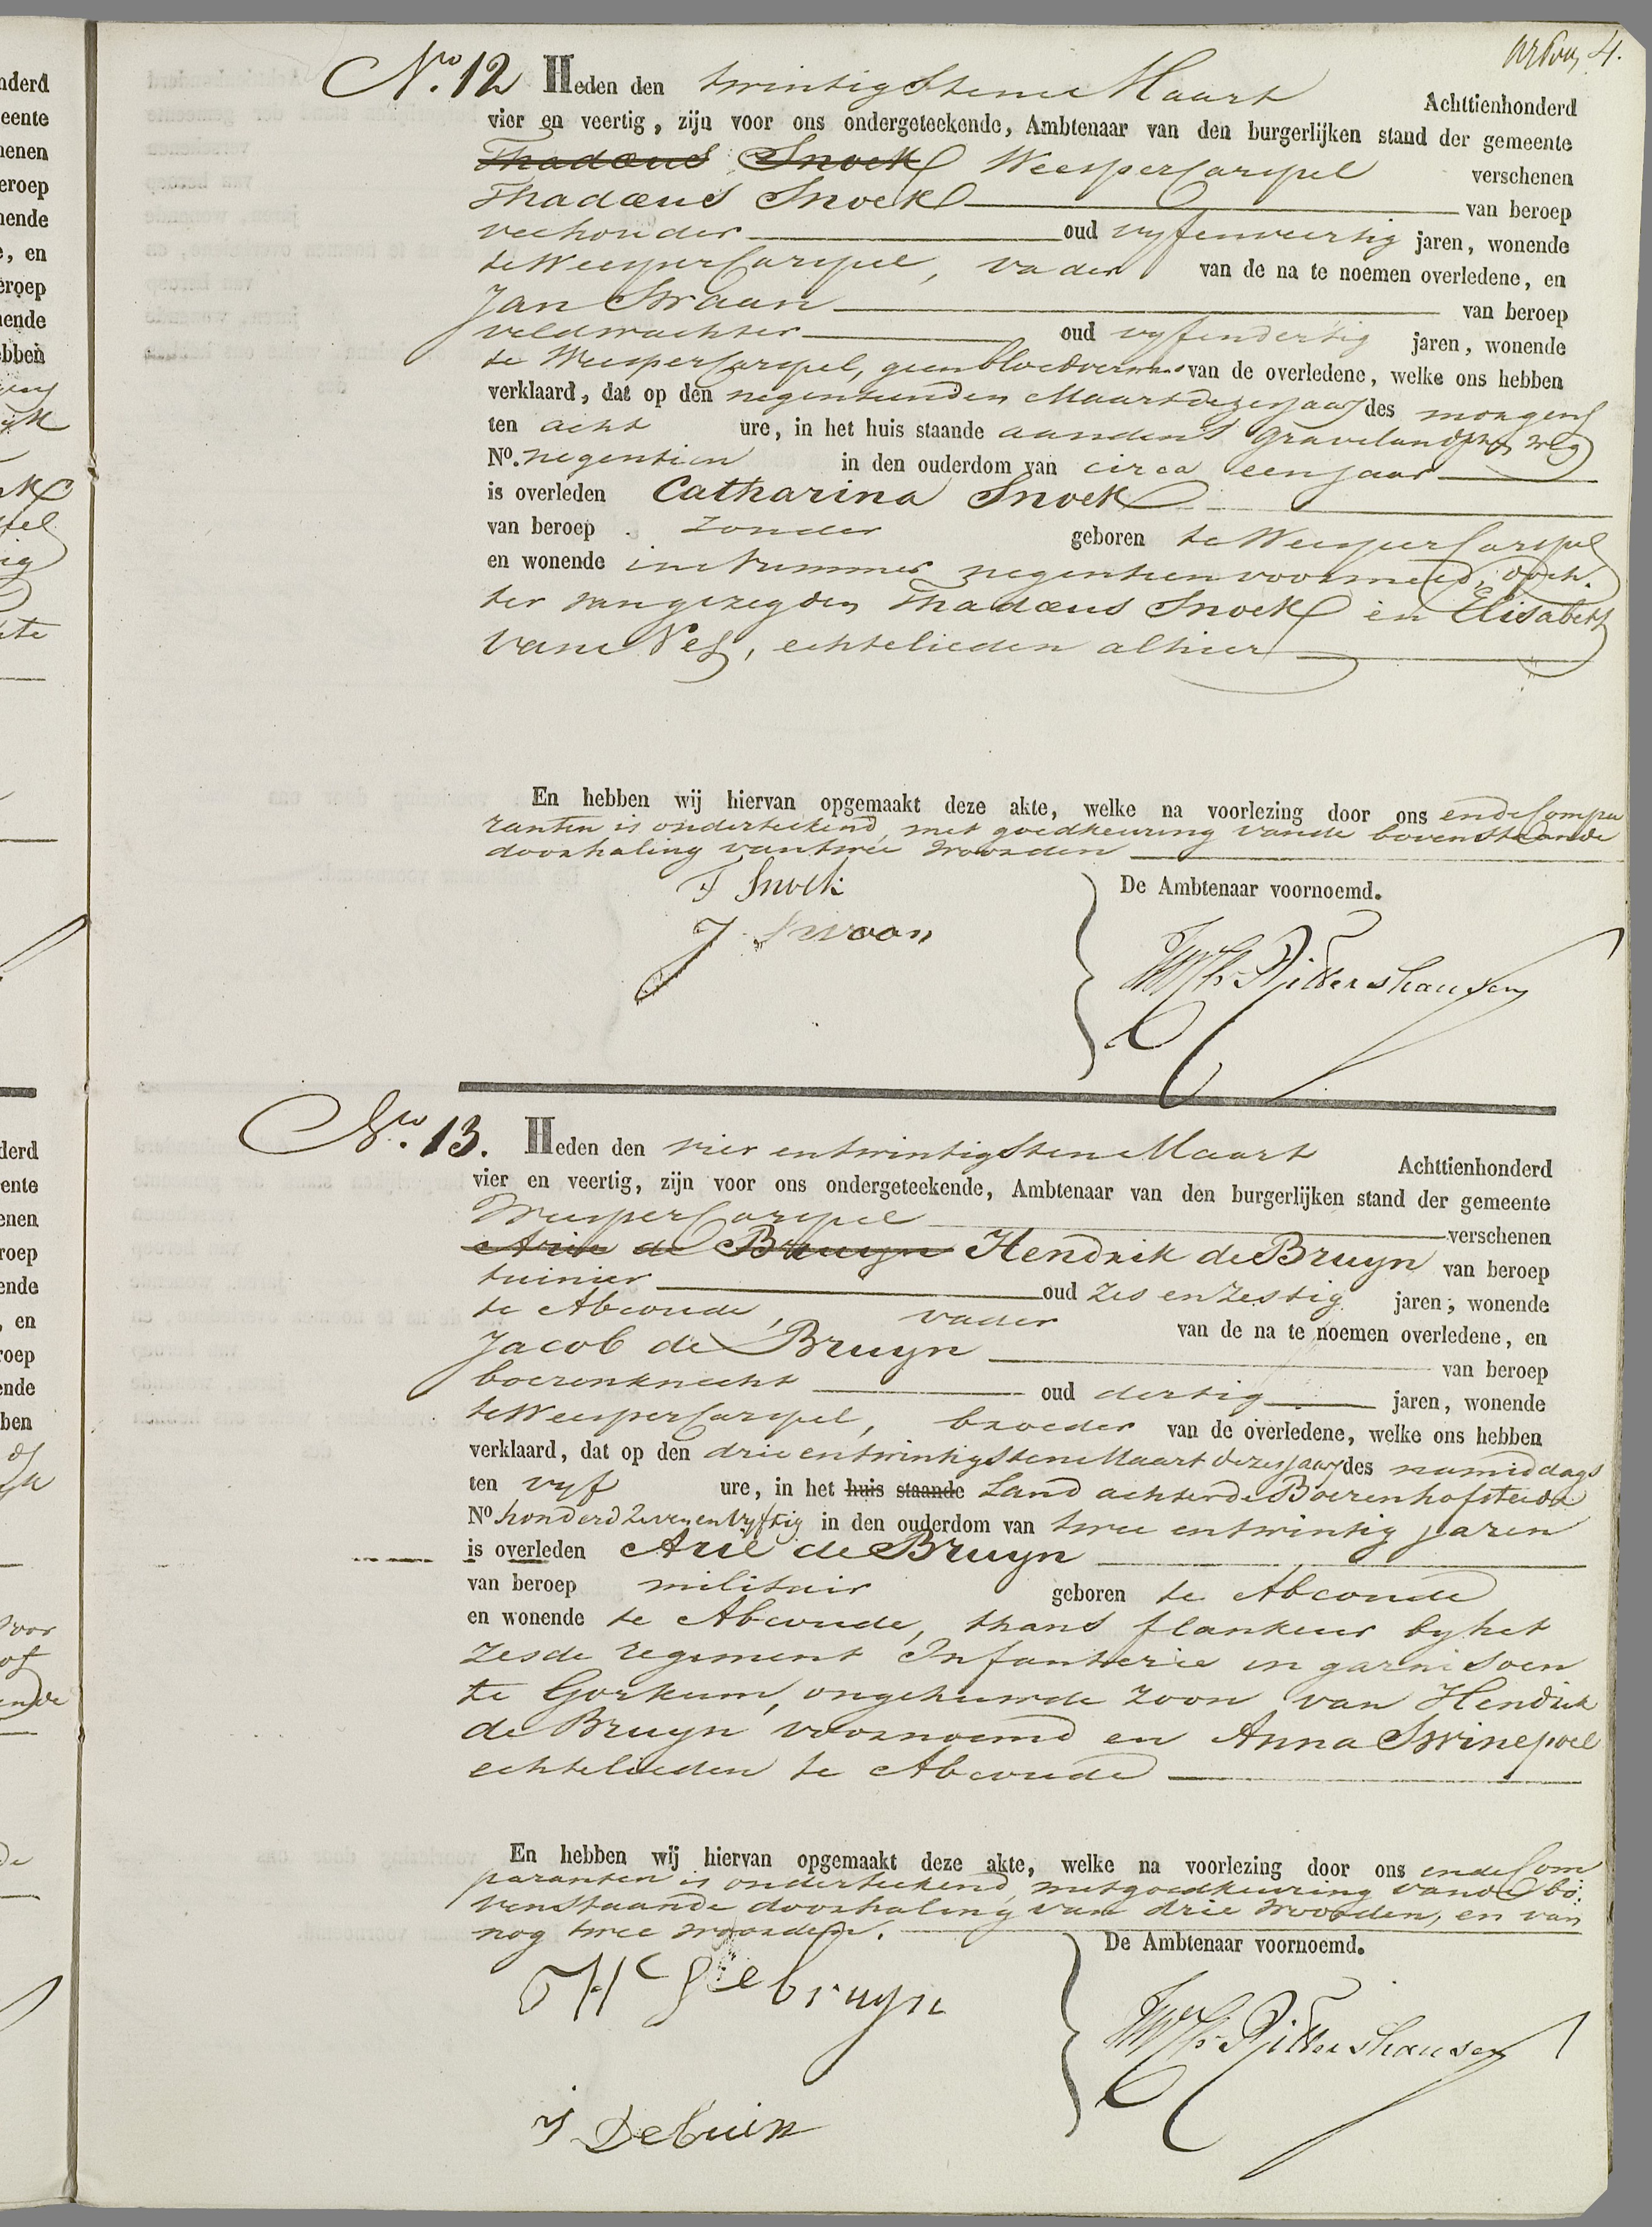 4.
Nro. 12 Heden den twintigsten Maart Achttienhonderd
vier en veertig, zijn voor ons ondergeteekende, Ambtenaar van den burgerlijken stand der gemeente
Thadæus Snoek Weespercarspel verschenen
Thadæus Snoek van beroep
veehouder oud vyfenveertig jaren, wonende
te Weespercarspel, vader van de na te noemen overledene, en
Jan Swaan van beroep
veldwachter oud vyfendertig jaren, wonende
te Weespercarspel, geen bloedverw. van de overledene, welke ons hebben
verklaard, dat op den negentienden Maart dezes jaars des morgens
ten acht ure, in het huis staande aanden 's Gravelandsche weg
No. negentien in den ouderdom van circa een jaar
is overleden Catharina Snoek
van beroep zonder geboren te Weespercarspel
en wonende in nummer negentien voormeld, doch-
ter van gezegden Thadæus Snoek en Elisabeth
van Nes, echtelieden alhier
En hebben wij hiervan opgemaakt deze akte, welke na voorlezing door ons en de Compa
ranten is onderteekend, met goedkeuring van de bovenstaande
doorhaling van twee woorden
T Snoek
De Ambtenaar voornoemd.
J. Swaan
Nro. 13. Heden den vier en twintigsten Maart Achttienhonderd
vier en veertig, zijn voor ons ondergeteekende, Ambtenaar van den burgerlijken stand der gemeente
Weespercarspel verschenen
Arie de Bruyn Hendrik de Bruyn van beroep
tuinier oud zes en zestig jaren, wonende
te Abcoude, vader van de na te noemen overledene, en
Jacob de Bruyn van beroep
boerenknecht oud dertig jaren, wonende
te Weespercarspel, broeder van de overledene, welke ons hebben
verklaard, dat op den drie en twintigsten Maart dezes jaars des namiddags
ten vyf ure, in het huis staande Land achter de Boerenhofstede
No honderd zeven en vyftig in den ouderdom van twee en twintig jaren
is overleden Arie de Bruyn
van beroep militair geboren te Abcoude
en wonende te Abcoude, thans flankeur by het
zesde regiment Infanterie in garnisoen
te Gorkum, ongehuwde zoon van Hendrik
de Bruyn voornoemd en Anna Swinepoel
echtelieden te Abcoude
En hebben wij hiervan opgemaakt deze akte, welke na voorlezing door ons en de Com
paranten is onderteekend, met goedkeuring van de bo-
venstaande doorhaling van drie woorden, en van
nog twee woorden.
De Ambtenaar voornoemd.
H de bruyn
J Debuin